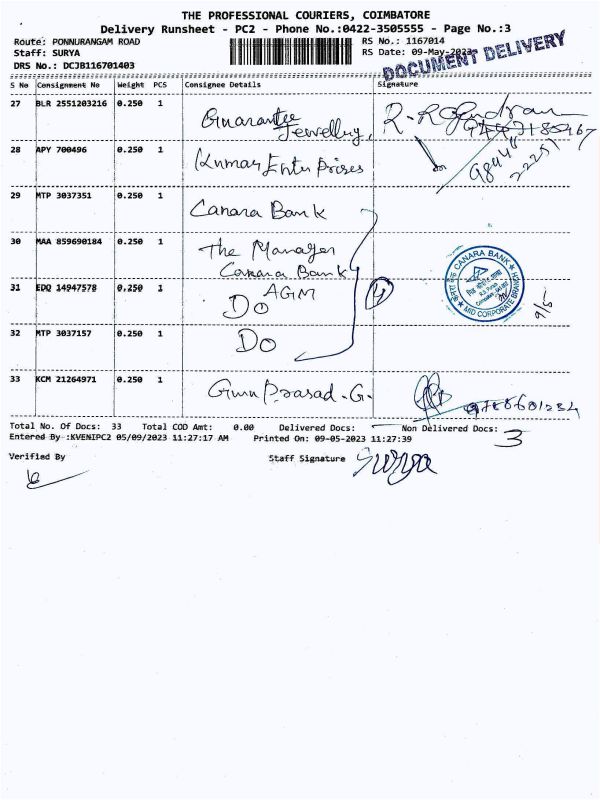 THE PROFESSIONAL COURIERS, COIMBATORE
Delivery Runsheet - PC2 - Phone No.:0422-3505555 - Page No.:3
Route: PONNURANGAM ROAD RS No.: 1167014
Staff: SURYA RS Date: 09-May-2023
DRS No.: DCJB116701403 DOCUMENT DELIVERY
S No Consignment No Weight PCS Consignee Details Signature
27 BLR 2551203216 0.250 1 Guarantee Jewellery,
28 APY 700496 0.250 1 Kumar Enterprises 98448 22251
29 MTP 3037351 0.250 1 Canara Bank
30 MAA 859690184 0.250 1 The Manager
Canara Bank
CANARA BANK
MID CORPORATE BRANCH
31 EDQ 14947578 0.250 1 AGM
Do 4
32 MTP 3037157 0.250 1 Do
33 KCM 21264971 0.250 1 Guru Prasad. G.
Total No. Of Docs: 33 Total COD Amt: 0.00 Delivered Docs: Non Delivered Docs: 3
Entered By :KVENIPC2 05/09/2023 11:27:17 AM Printed On: 09-05-2023 11:27:39
Verified By Staff Signature Surya